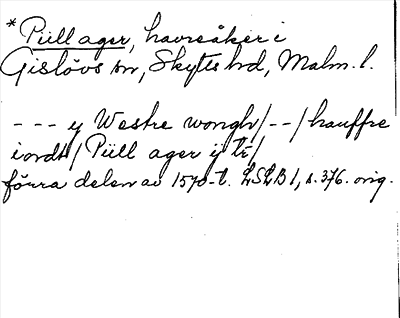 *Püll ager, havreåker i
Gislövs sn, Skytts hd, Malm. l.
--- y Westre wongh/--/hauffre
iordt/ Püll ager ij tr/
förra delen av 1570-t. LSLB 1, s. 376. orig.